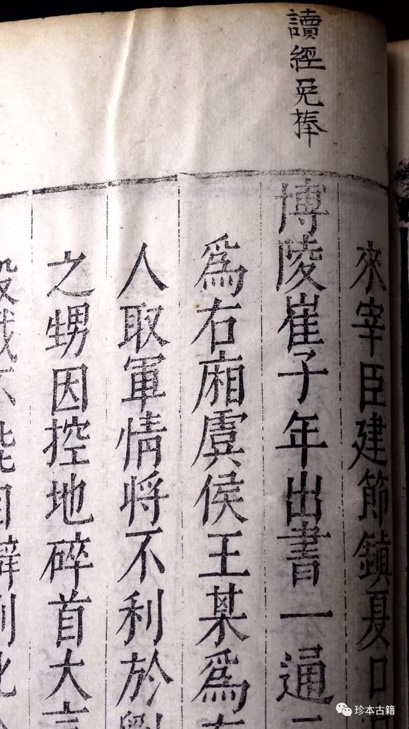 讀經免捧
來宰臣建節鎮夏口
博陵崔子年出書一通
爲右廂虞侯王某爲
人取軍情將不利於
之甥因控地碎首大言
珍本古籍